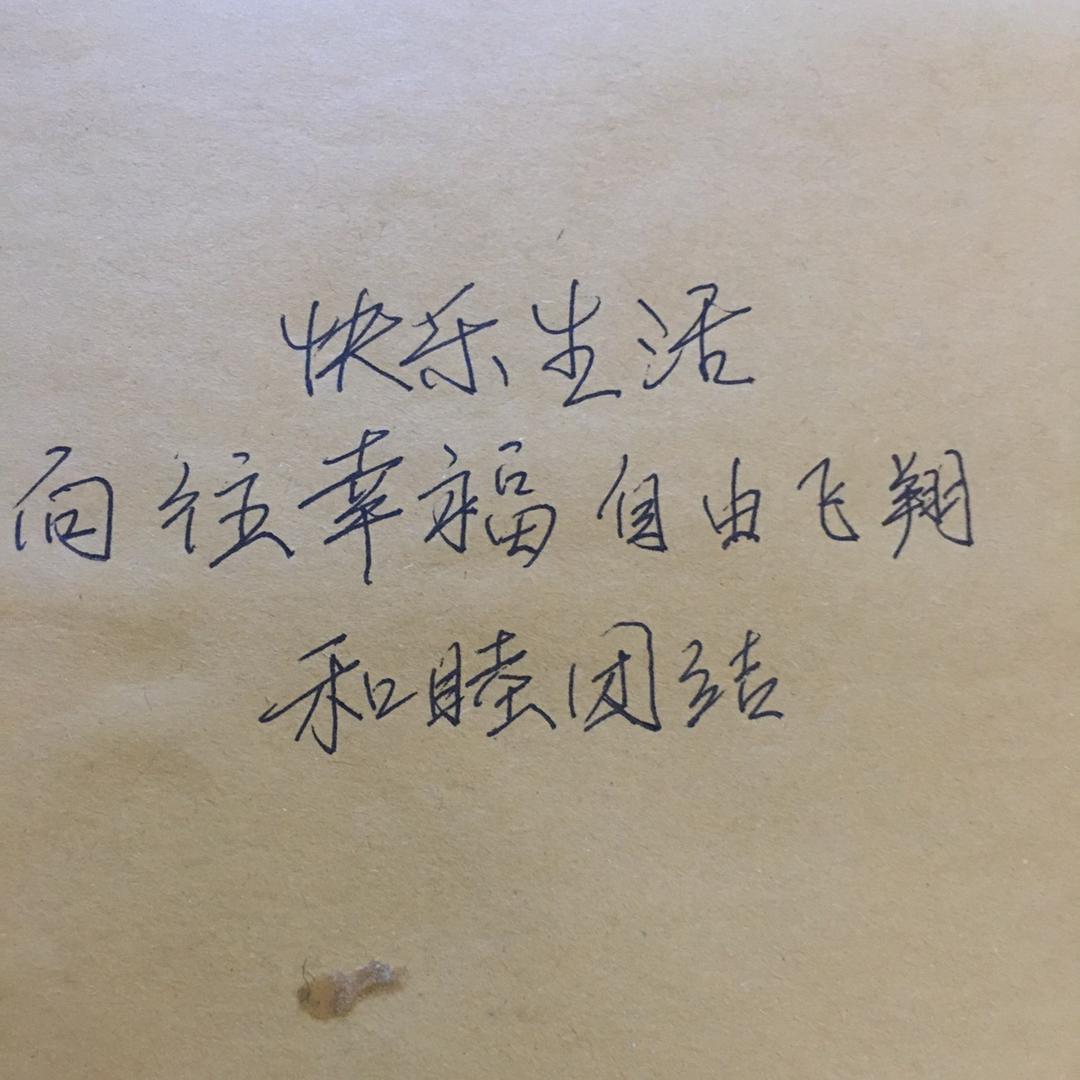 快乐生活
向往幸福 自由飞翔
和睦团结